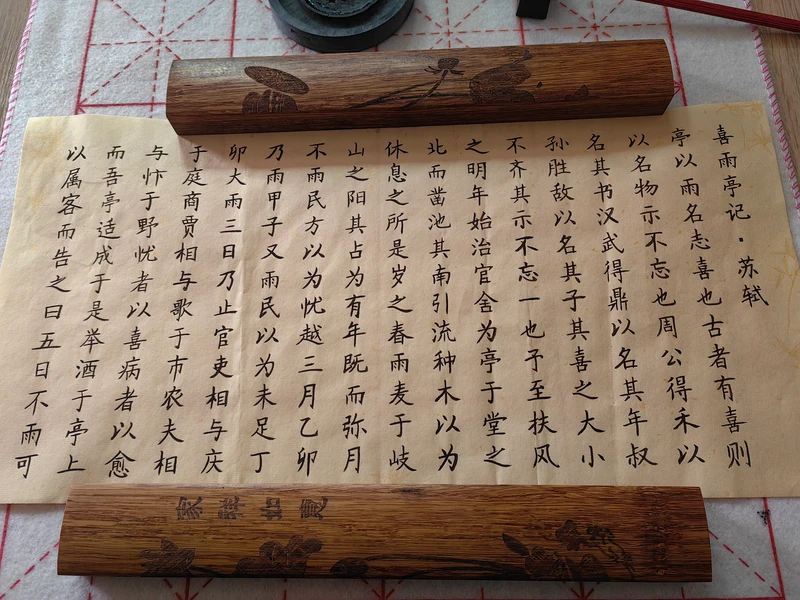 喜雨亭记·苏轼
亭以雨名志喜也古者有喜则
以名物示不忘也周公得禾以
名其书汉武得鼎以名其年叔
孙胜敌以名其子其喜之大小
不齐其示不忘一也予至扶风
之明年始治官舍为亭于堂之
北而凿池其南引流种木以为
休息之所是岁之春雨麦于岐
山之阳其占为有年既而弥月
不雨民方以为忧越三月乙卯
乃雨甲子又雨民以为未足丁
卯大雨三日乃止官吏相与庆
于庭商贾相与歌于市农夫相
与忭于野忧者以喜病者以愈
而吾亭适成于是举酒于亭上
以属客而告之曰五日不雨可